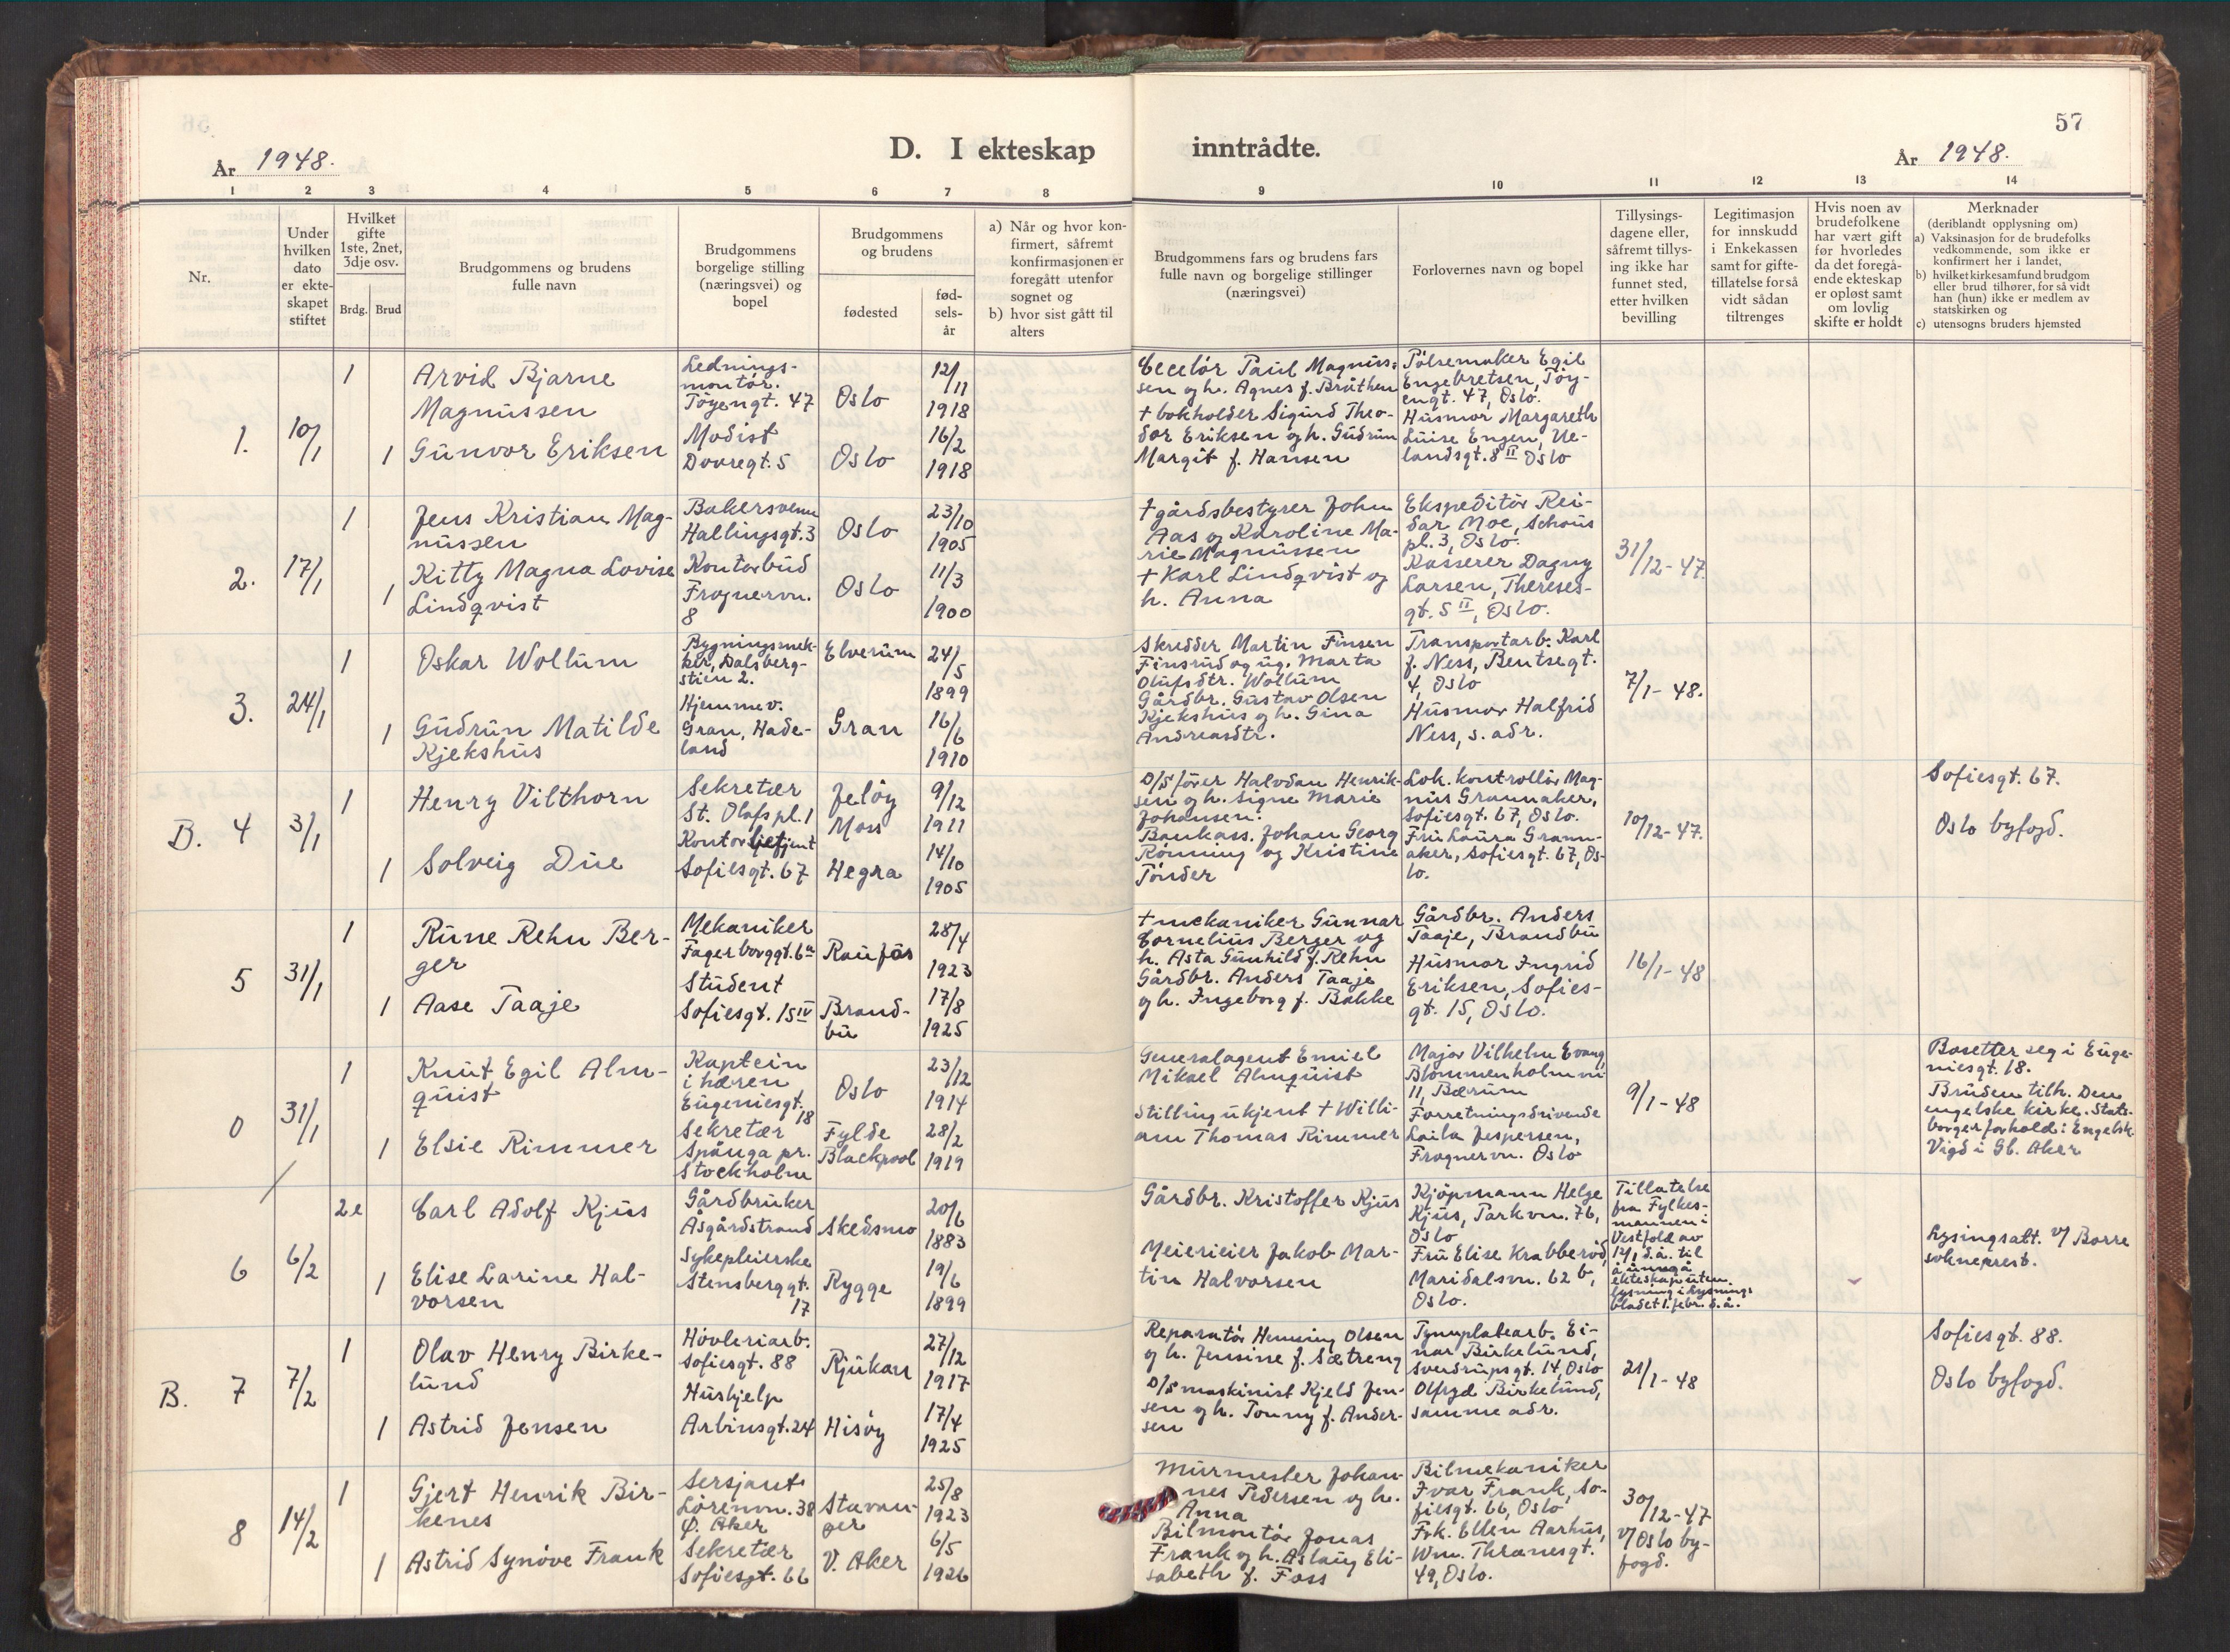 57
År 1948.
D. I ekteskap inntrådte.
År 1948.
1 2 3 4 5 6 7 8 9 10 11 12 13 14
Nr.
Under
hvilken
dato
er ekte-
skapet
stiftet
Hvilket
gifte
1ste, 2net,
3dje osv.
Brdg. Brud
Brudgommens og brudens
fulle navn
Brudgommens
borgelige stilling
(næringsvei) og
bopel
Brudgommens
og brudens
fødested
fød-
sels-
år
a) Når og hvor kon-
firmert, såfremt
konfirmasjonen er
foregått utenfor
sognet og
b) hvor sist gått til
alters
Brudgommens fars og brudens fars
fulle navn og borgelige stillinger
(næringsvei)
Forlovernes navn og bopel
Tillysings-
dagene eller,
såfremt tillys-
ing ikke har
funnet sted,
etter hvilken
bevilling
Legitimasjon
for innskudd
i Enkekassen
samt for gifte-
tillatelse for så
vidt sådan
tiltrenges
Hvis noen av
brudefolkene
har vært gift
før hvorledes
da det foregå-
ende ekteskap
er opløst samt
om lovlig
skifte er holdt
Merknader
(deriblandt opplysning om)
a) Vaksinasjon for de brudefolks
vedkommende, som ikke er
konfirmert her i landet,
b) hvilket kirkesamfund brudgom
eller brud tilhører, for så vidt
han (hun) ikke er medlem av
statskirken og
c) utensogns bruders hjemsted
1.
10/1
1
Arvid Bjarne
Magnussen
Lednings-
montør.
Töyengt. 47
Oslo
12/11
1918
1
Gunvor Eriksen
Modist
Dovregt. 5
Oslo
16/2
1918
Paul Magnus-
sen og h. Agnes f. Bruthen
+ bokholder Sigurd Theo-
dor Eriksen og h. Gudrun
Margit f. Hansen
Pølsemaker Egil
Engebretsen, Töy-
engt. 47, Oslo.
Husmor Margareth
Luise Engen, Ue-
landsgt. 8 II Oslo
2.
17/1
1
Jens Kristian Mag-
nussen
Bakersvenn
Hallingsgt. 3
Oslo
23/10
1905
1
Kitty Magna Lovise
Lindqvist
Kontorbud
Frognervn.
8
Oslo
11/3
1900
+ gårdsbestyrer John
Aas og Karoline Ma-
rie Magnussen
+ Karl Lindqvist og
h. Anna
Ekspeditør Rei-
dar Moe, Schous
pl. 3, Oslo.
Kasserer Dagny
Larsen, Thereses-
gt. 5 II, Oslo.
31/12-47.
3.
24/1
1
Oskar Wollum
Bygningsmek-
ker, Dalsberg-
stien 2.
Elverum
24/5
1899
1
Gudrun Matilde
Kjekshus
Hjemmev.
Gran, Hade-
land
Gran
16/6
1910
Skredder Martin Finsen
Finsrud og ug. Marta
Olufsdtr. Wollum
Gårdbr. Gustav Olsen
Kjekshus og h. Gina
Andreasdtr.
Transportarb. Karl
f. Ness, Bentsegt.
4, Oslo
Husmor Halfrid
Ness, s. adr.
7/1-48.
B. 4
31/1
1
Henry Vilthorn
Sekretær
St. Olafs pl. 1
Jelöy
Moss
9/12
1911
1
Solveig Due
Kontorbetjent
Sofiesgt. 67
Hegra
14/10
1905
D/S fører Halvdan Henrik-
sen og h. Signe Marie
Johansen.
Bankass. Johan Georg
Rønning og Kristine
Tönder
Lok. kontrollør Mag-
nus Grannaker,
Sofiesgt. 67, Oslo.
Fru Laura Grann-
aker, Sofiesgt. 67, Os-
lo.
10/12-47.
Sofiesgt. 67.
Oslo byfogd.
5
31/1
1
Rune Rehn Ber-
ger
Mekaniker
Fagerborggt. 6a
Raufos
28/4
1923
1
Aase Taaje
Student
Sofiesgt. 15 IV
Brand-
bu
17/8
1925
+ mekaniker Gunnar
Cornelius Berger og
h. Asta Gunhild f. Rehn
Gårdbr. Anders Taaje
og h. Ingeborg f. Bakke
Gårdbr. Anders
Taaje, Brandbu
Husmor Ingrid
Eriksen, Sofies-
gt. 15, Oslo.
16/1-48
0
31/1
1
Knut Egil Alm-
quist
Kaptein
i hæren
Eugeniesgt.
18
Oslo
23/12
1914
1
Elsie Rimmer
Sekretær
Spånga pr.
Stockholm
Fylde
Blackpool
28/2
1919
Generalagent Emiel
Mikael Almquist
Stilling ukjent + Willi-
am Thomas Rimmer
Major Vilhelm Evang
Blommenholmvn.
11, Bærum
Forretningsdrivende
Laila Jespersen,
Frognervn. Oslo
9/1-48
Bosetter seg i Euge-
niesgt. 18.
Bruden tilh. Den
engelske kirke. Stats-
borgerforhold: Engelsk
Vigd i Gl. Aker
6
6/2
2e
Carl Adolf Kjus
Gårdbruker
Åsgårdstrand
Skedsmo
20/6
1883
1
Elise Larine Hal-
vorsen
Sykepleierske
Stensberggt.
17
Rygge
19/6
1899
Gårdbr. Kristoffer Kjus
Meierieier Jakob Mar-
tin Halvorsen
Kjöpmann Helge
Kjus, Parkvn. 76,
Oslo
Fru Elise Krabberöd,
Maridalsvn. 62 b,
Oslo.
Tillatelse
fra Fylkes-
mannen i
Vestfold av
14/1 d.å. til
å unngå
ekteskap uten
lysning i Lysnings-
bladet 1. febr. d.å.
Lysingsatt. v/ Borre
sokneprest.
B. 7
7/2
1
Olav Henry Birke-
lund
Hövleriarb.
Sofiesgt. 88
Rjukan
27/12
1917
1
Astrid Jensen
Hushjelp
Arbinsgt. 24
Hisöy
17/4
1925
Reparatör Henning Olsen
og h. Jensine f. Sætreng
D/S maskinist Kjeld Jen-
sen og h. Tonny f. Ander-
sen
Tynnplatearb. Ei-
nar Birkelund,
Sverdrupsgt. 14, Oslo
Olfryd Birkelund,
samme adr.
21/1-48
Sofiesgt. 88.
Oslo byfogd.
8
14/2
1
Gjert Henrik Bir-
kenes
Sersjant
Lörenvn. 38
Ö. Aker
Stavan-
ger
25/8
1923
1
Astrid Synöve Frank
Sekretær
Sofiesgt. 66
V. Aker
6/5
1926
Murmester Johan-
nes Pedersen og h.
Anna
Bilmontör Jonas
Frank og h. Aslaug Eli-
sabeth f. Foss
Bilmekaniker
Ivar Frank, So-
fiesgt. 66, Oslo
Frk. Ellen Aarhus,
Wm. Thranesgt.
49, Oslo.
30/12-47
v/ Oslo by-
fogd.